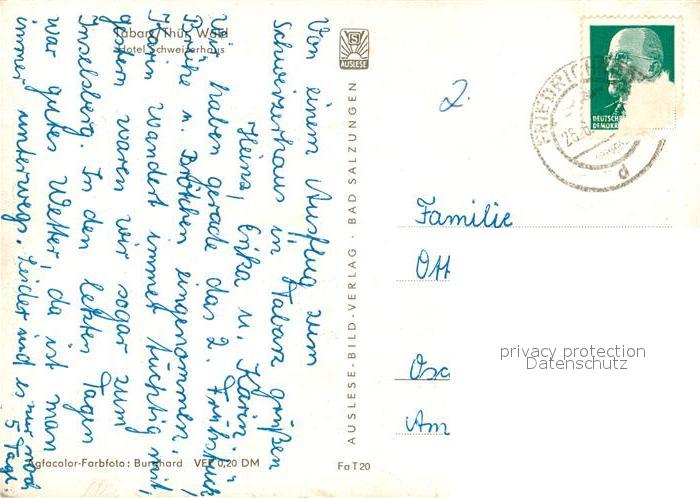 Tabarz/Thür. Wald
Hotel Schweizerhaus
Von einem Ausflug zum
Schweizerhaus in Tabarz grüßen
Heinz, Erika u. Karin.
Wir haben gerade das 2. Frühstück,
Brühe u. Brötchen eingenommen.
Karin wandert immer tüchtig mit,
gestern waren wir sogar zum
Inselsberg. In den letzten Tagen
war gutes Wetter, da ist man
immer unterwegs. Leider sind es nur noch
5 Tage.
Agfacolor-Farbfoto: Burghard VEP 0,20 DM
Fa T 20
AUSLESE-BILD-VERLAG · BAD SALZUNGEN
AUSLESE
2.
DEUTSCHE
DEMOKR
FRIEDRICH
d
Familie
Ott
Am
privacy protection
Datenschutz